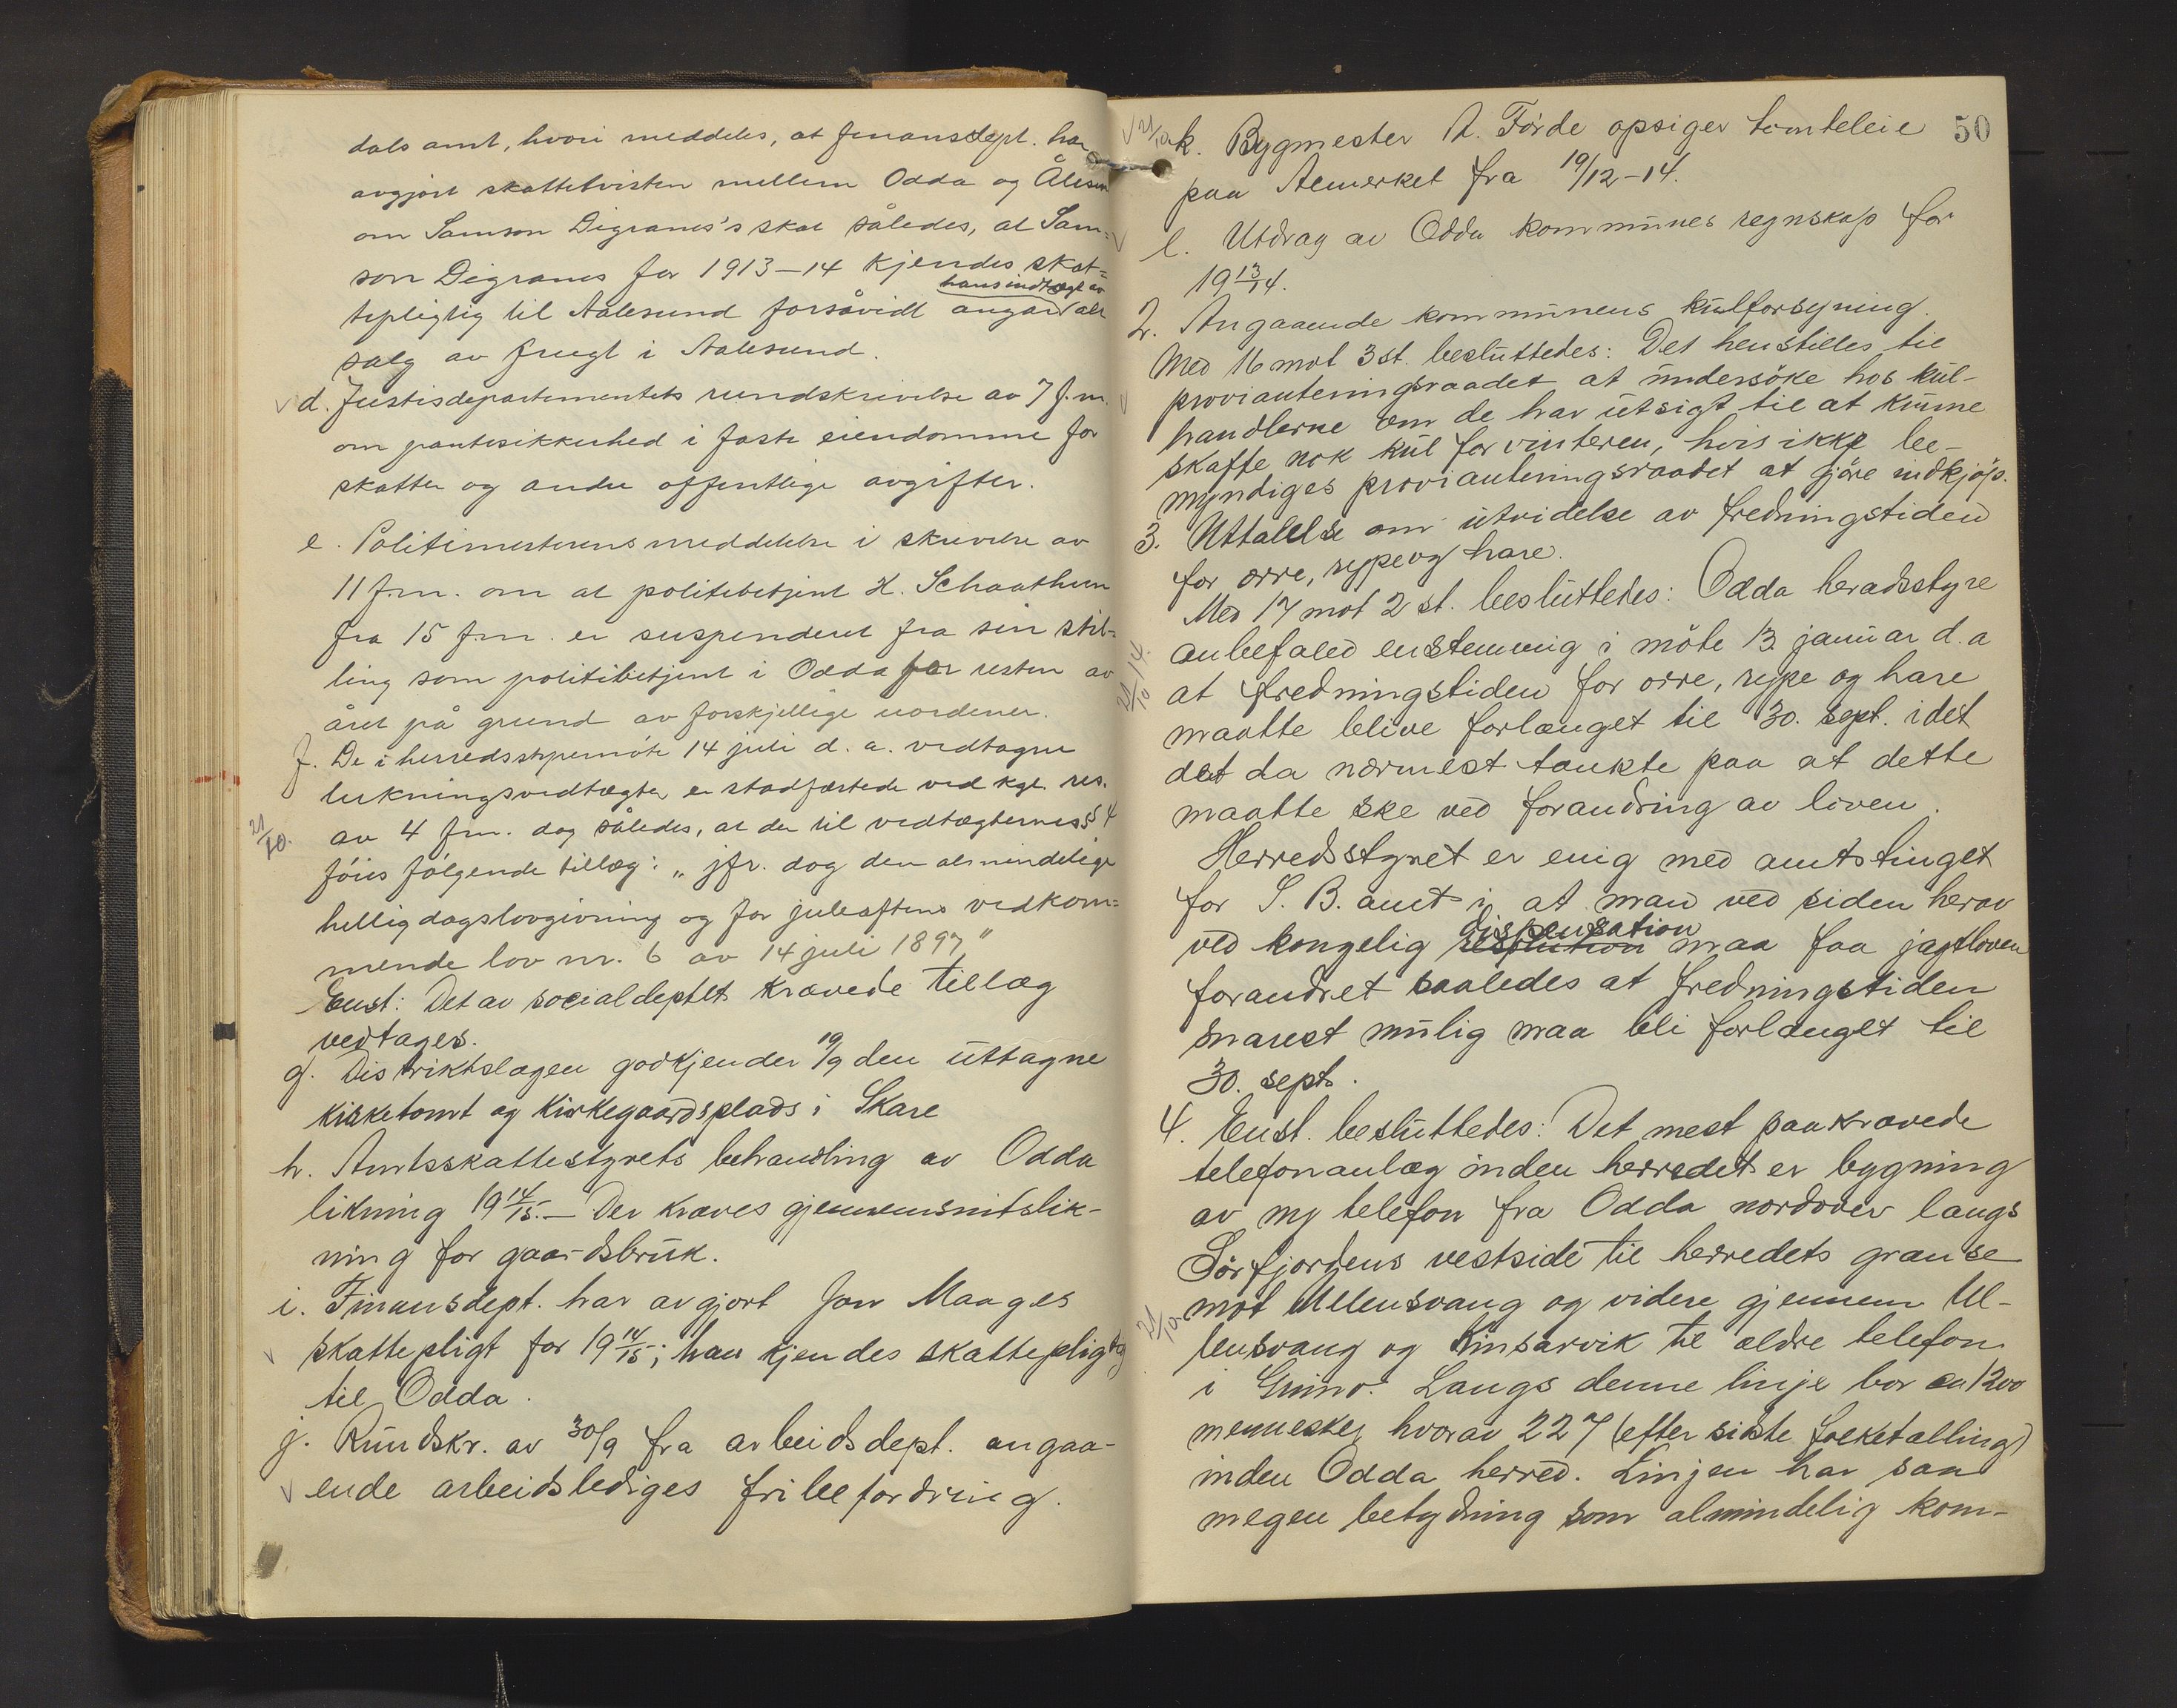 dals amt, hvori meddeles, at finansdept. har
avgjort skattetvisten mellem Odda og Ålesun
om Samson Digranes's skat således, at Sam=
son Digranes for 1913–14 kjendes skat=
hans indtægt av
tepligtig til Aalesund forsåvidt angår alt
salg av frugt i Aalesund.
d. Justisdepartementets rundskrivelse av 7 f.m.
om pantesikkerhed i faste eiendomme for
skatter og andre offentlige avgifter.
e. Politimesterens meddelelse i skrivelse av
11 f.m. om at politibetjent H. Schaathun
fra 15 f.m. er suspenderet fra sin stil-
ling som politibetjent i Odda for resten av
året på grund av forskjellige uordener.
f. De i herredsstyremöte 14 juli d. a. vedtagne
lukningsvedtægter er stadfæstede ved kgl. res.
21/10. av 4 f.m. dog således, at der til vedtægternes § 4
föies fölgende tillæg: „jfr. dog den almindelige
helligdagslovgivning og for juleaftens vedkom=
mende lov nr. 6 av 14 juli 1897"
Enst: Det av socialdeptet krævede tillæg
vedtages.
g. Distriktslægen godkjender 19/9 den uttagne
kirketomt og kirkegaardsplads i Skare
h. Amtsskattestyrets behandling av Odda
likning 19 14/15. – Der kræves gjennemsnitslik-
ning for gaardsbruk.
i. Finansdept. har avgjort Jon Maages
skattepligt for 19 14/15; han kjendes skattepligtig
til Odda.
j. Rundskr. av 30/9 fra arbeidsdept. angaa-
ende arbeidslediges fribefordring.
50
21/10 k. Bygmester A. Förde opsiger tomteleie
paa Almerket fra 19/12-14.
l. Utdrag av Odda kommunes regnskap for
19 13/14.
2. Angaaende kommunens kulforsyning.
Med 16 mot 3 st. besluttedes: Det henstilles til
provianteringsraadet at undersöke hos kul-
handlerne om de har utsigt til at kunne
skaffe nok kul for vinteren, hvis ikke be-
myndiges provianteringsraadet at gjöre indkjöp.
3. Uttalelse om utvidelse av fredningstiden
for orre, rype og hare.
Med 17 mot 2 st. besluttedes: Odda heradsstyre
21/10-14. anbefaled enstemmig i möte 13 januar d. a
at fredningstiden for orre, rype og hare
maatte blive forlænget til 30. sept. idet
det da nærmest tænkte paa at dette
maatte ske ved forandring av loven.
Herredsstyret er enig med amtstinget
for S. B. amt i, at man ved siden herav
dispensation
ved kongelig resolution maa faa jagtloven
forandret saaledes at fredningstiden
snarest mulig maa bli forlænget til
30. sept.
4. Enst. besluttedes: Det mest paakrævede
telefonanlæg inden herredet er bygning
av ny telefon fra Odda nordover langs
Sörfjordens vestside til herredets grænse
21/10. mot Ullensvang og videre gjennem Ul-
lensvang og Kinsarvik til ældre telefon
i Grimo. Langs denne linje bor ca 1200
mennesker hvorav 227 (efter sidste folketælling)
inden Odda herred. Linjen har saa
megen betydning som almindelig kom-